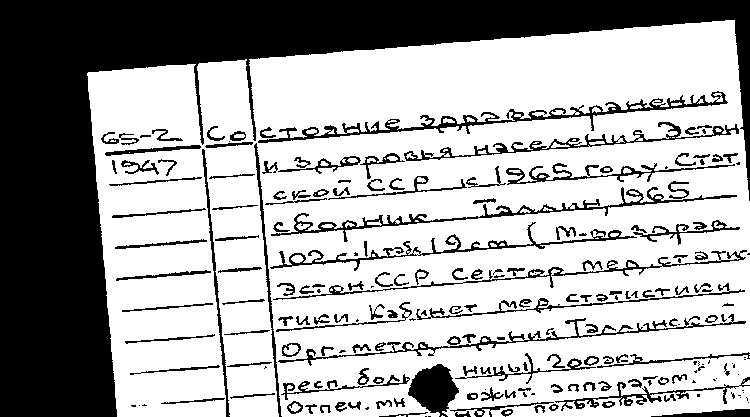 65-2 Состояние здравоохранения
1947 и здоровья населения Эстон-
ской ССР к 1965 году. Стат.
сборник. Таллин, 1965.
102 с; 19 cm (М-во здрав.
Эстон. ССР. Сектор мед. статис-
тики. Кабинет мед. статистики
Орг.-метод. отд-ния Таллинской
респ. боль ницы). 200 экз.
Отпеч. мн ожит. аппаратом.
ного пользования.